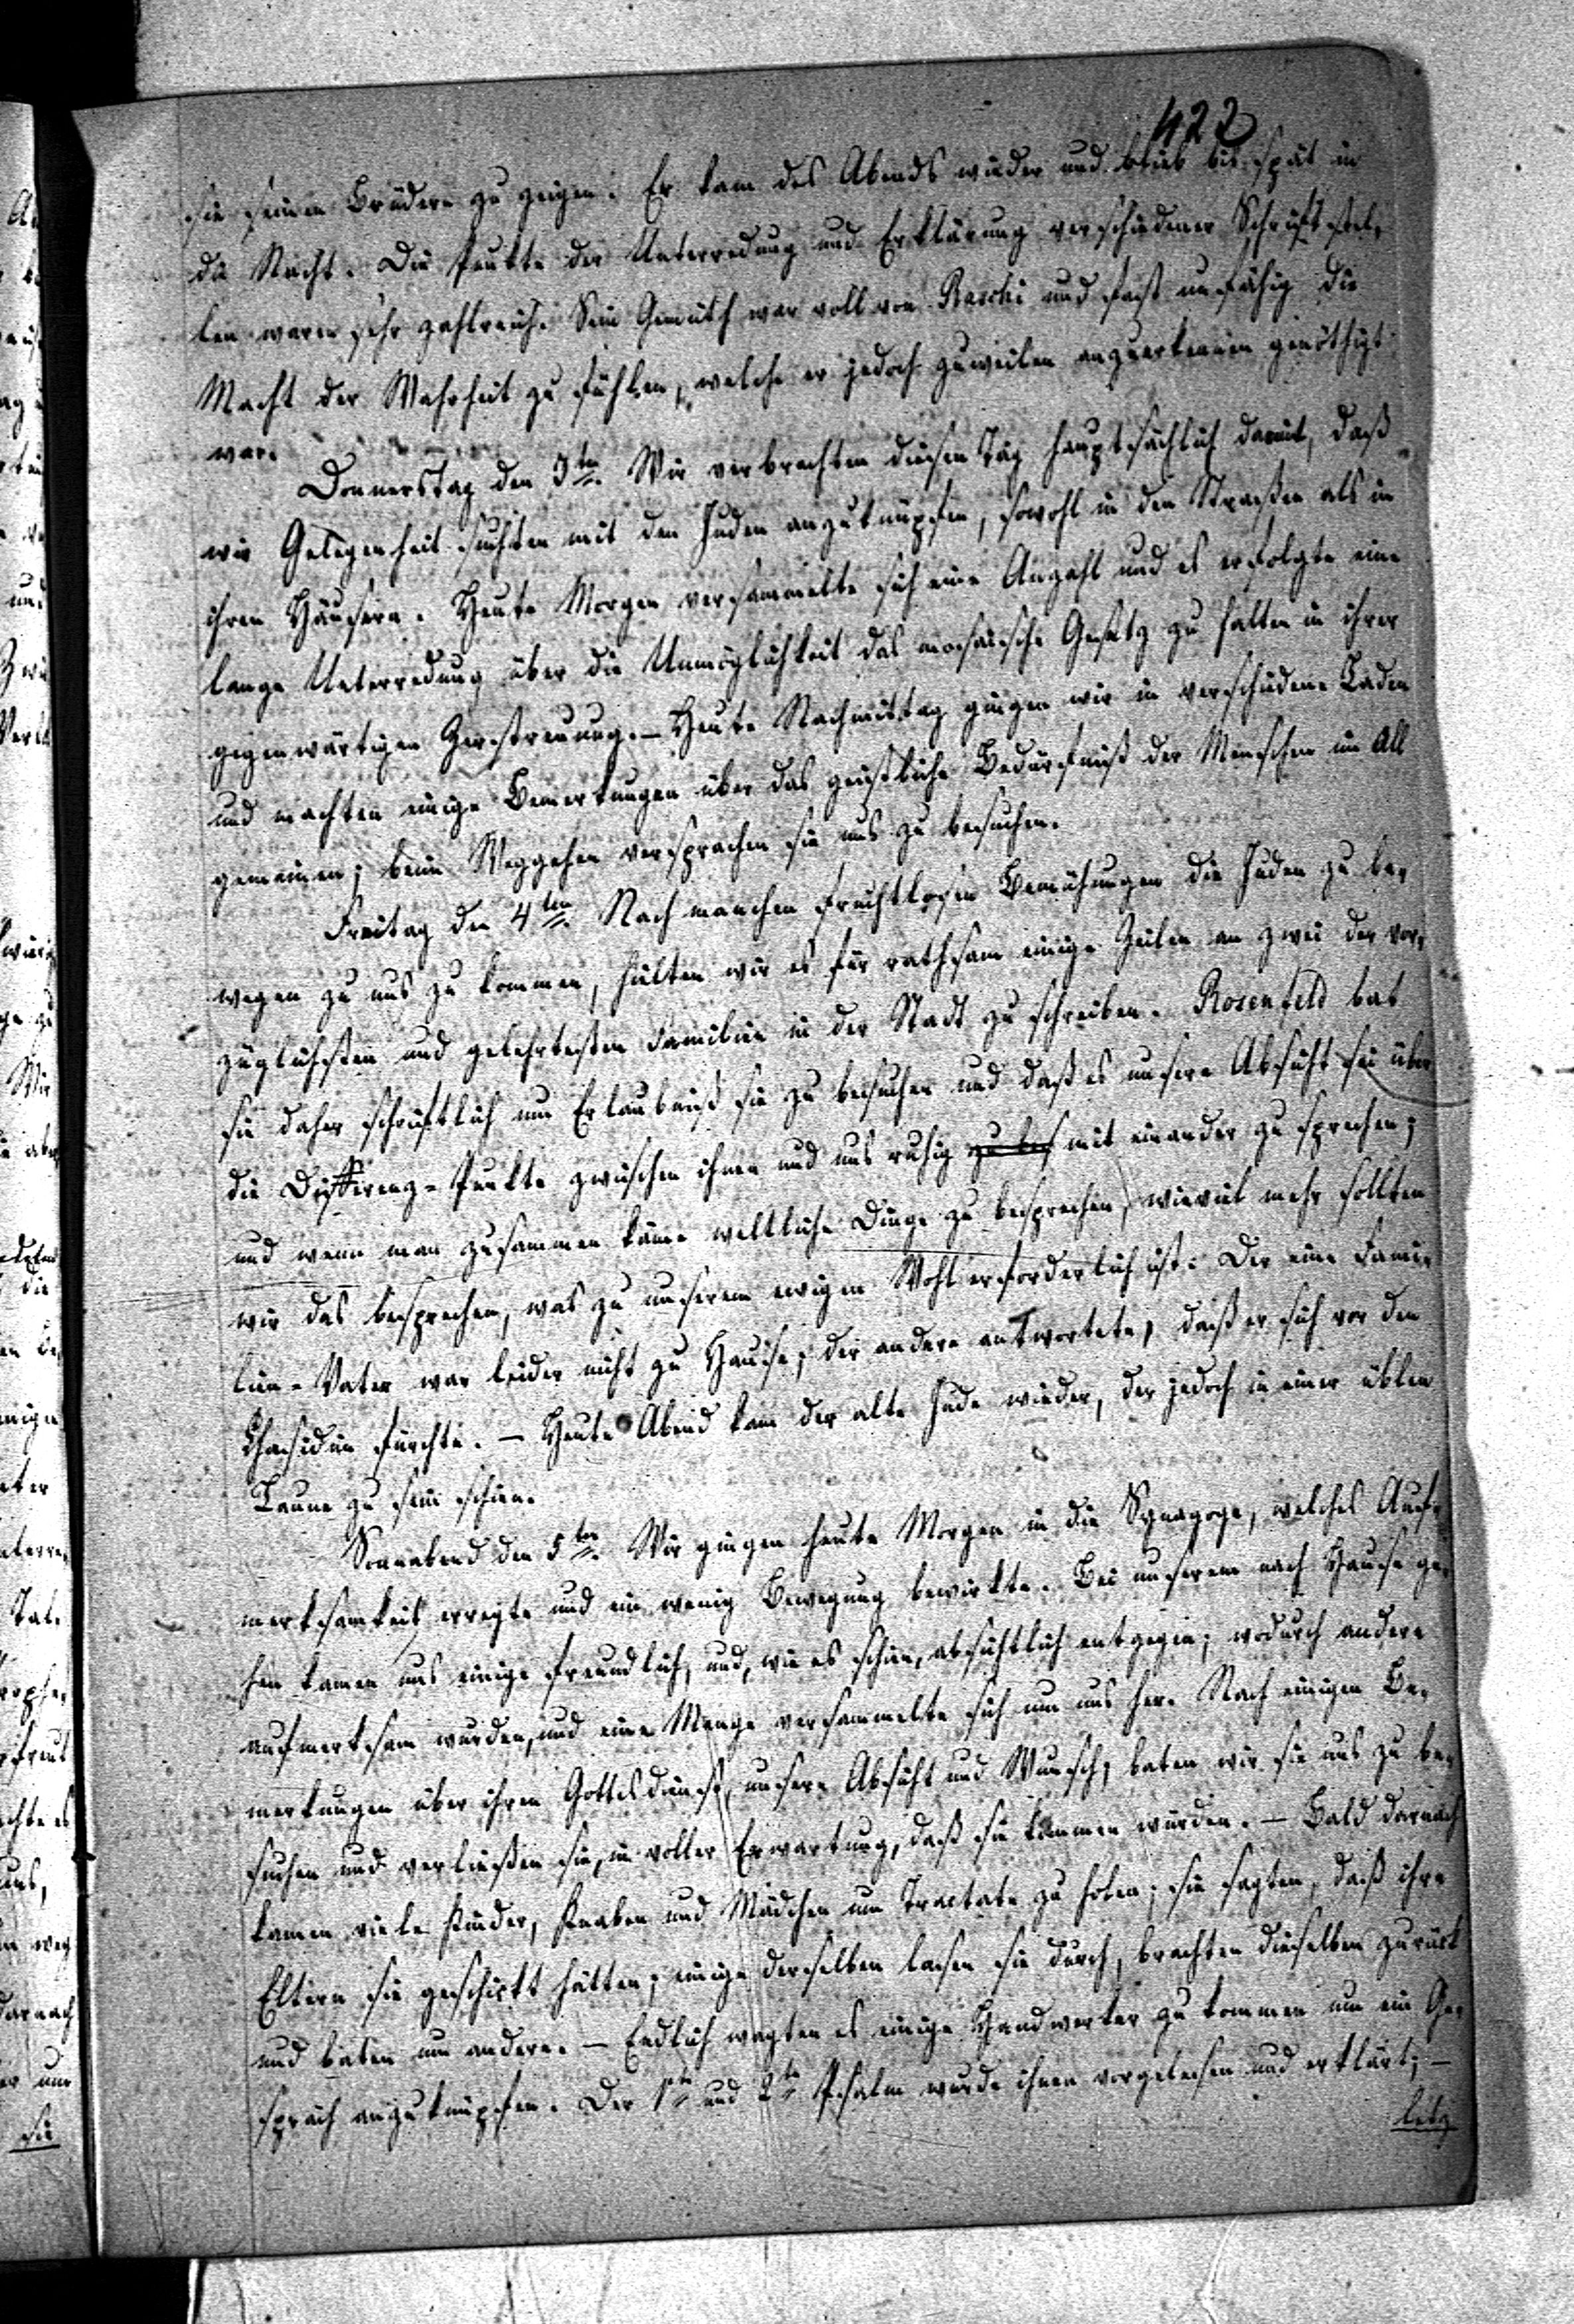 422
sie seinen Brüdern zu zeigen. Er kam des Abends wieder und blieb bis spät in
die Nacht. Die Punkte der Unterredung und Erklärung verschiedener Schriftstel-
len waren sehr zahlreich. Sein Gemüth war voll von Raschi und fast unfähig die
Macht der Wahrheit zu fühlen, welche er jedoch zuweilen anzuerkennen genöthigt
war.
Donnerstag den 3ten. Wir verbrachten diesen Tag hauptsächlich damit, daß
wir Gelegenheit suchten mit den Juden anzuknüpfen, sowohl in den Straßen als in
ihren Häusern. Heute Morgen versammelte sich eine Anzahl und es erfolgte eine
lange Unterredung über die Unmöglichkeit das mosaische Gesetz zu halten in ihrer
gegenwärtigen Zerstreuung. – Heute Nachmittag gingen wir in verschiedene Laden
und machten einige Bemerkungen über das geistliche Bedürfniß der Menschen im All
gemeinen; beim Weggehen versprachen sie uns zu besuchen.
Freitag den 4ten. Nach manchen fruchtlosen Bemühungen die Juden zu be-
wegen zu uns zu kommen, hielten wir es für rathsam einige Zeilen an zwei der vor-
züglichsten und gelehrtesten Familien in der Stadt zu schreiben. Rosenfeld bat
sie daher schriftlich um Erlaubniß sie zu besuchen und daß es unsere Absicht sei über
die Differenz-Punkte zwischen ihnen und uns ruhig zu bes mit einander zu sprechen;
und wenn man zusammen käme weltliche Dinge zu besprechen, wieviel mehr sollten
wir das besprechen, was zu unserem ewigen Wohl erforderlich ist. Der eine Fami-
lien-Vater war leider nicht zu Hause; der andere antwortete, daß er sich vor den
Chasidim fürchte. – Heute Abend kam der alte Jude wieder, der jedoch in einer üblen
Laune zu sein schien.
Sonnabend den 5ten. Wir gingen heute Morgen in die Synagoge, welches Auf-
merksamkeit erregte und ein wenig Bewegung bewirkte. Bei unserem nach Hause ge-
hen kamen uns einige freundlich, und, wie es schien, absichtlich entgegen; wodurch andere
aufmerksam wurden, und eine Menge versammelte sich um uns her. Nach einigen Be-
merkungen über ihren Gottesdienst, unsere Absicht und Wunsch, baten wir sie uns zu be-
suchen und verließen sie, in voller Erwartung, daß sie kommen würden. – Bald darnach
kamen viele Kinder, Knaben und Mädchen um Tractate zu holen; sie sagten, daß ihre
Eltern sie geschickt hätten; einige derselben lasen sie durch, brachten dieselben zurück
und baten um andere. – Endlich wagten es einige Handwerker zu kommen um ein Ge-
spräch anzuknüpfen. Der 1te und 2te Psalm wurde ihnen vorgelesen und erklärt; –